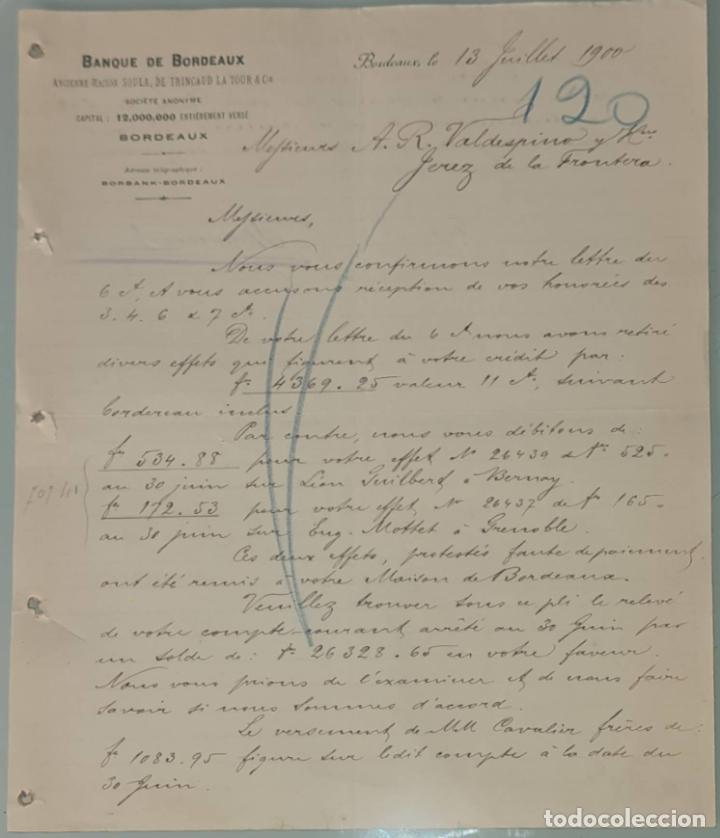 BANQUE DE BORDEAUX
ANCIENNE MAISON SOULA, DE TRINCAUD LA TOUR & Cie
SOCIÉTÉ ANONYME
CAPITAL : 12,000,000 ENTIÈREMENT VERSÉ
BORDEAUX
Adresse télégraphique :
BORBANK-BORDEAUX
Bordeaux, le 13 Juillet 1900
120
Messieurs A. R. Valdespino y Hno
Jerez de la Frontera.
Messieurs,
Nous vous confirmons notre lettre du
6 Ct, & vous accusons réception de vos honorées des
3. 4. 6 & 7 Ct.
De votre lettre du 6 Ct nous avons retiré
divers effets qui figurent à votre crédit par :
fs 4369.25 valeur 11 Ct, suivant
bordereau inclus.
Par contre, nous vous débitons de :
fs 534.88 pour votre effet No 26439 de fs 525.
au 30 juin sur Léon Guilbert à Bernay.
fs 172.53 pour votre effet No 26437 de fs 165.
au 30 juin sur Eug. Mottet à Grenoble.
707.41
Ces deux effets, protestés faute de paiement
ont été remis à votre Maison de Bordeaux.
Veuillez trouver sous ce pli le relevé
de votre compte-courant arrêté au 30 Juin par
un solde de : fs 26328.65 en votre faveur.
Nous vous prions de l'examiner & de nous faire
savoir si nous sommes d'accord.
Le versement de MM Cavalier frères de :
fs 1083.95 figure sur ledit compte à la date du
30 Juin.
todocoleccion